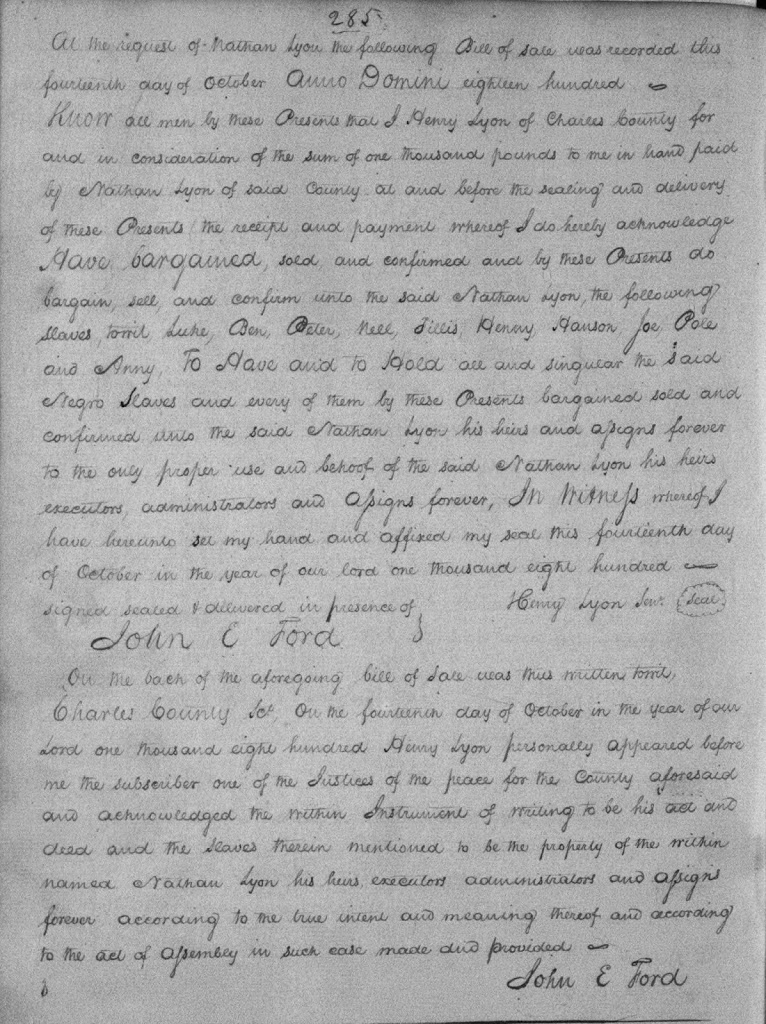 285.
At the request of Nathan Lyon the following Bill of sale was recorded this
fourteenth day of October Anno Domini eighteen hundred
Know all men by these Presents that I Henry Lyon of Charles County for
and in consideration of the sum of one thousand pounds to me in hand paid
by Nathan Lyon of said County at and before the sealing and delivery
of these Presents the receipt and payment whereof I do hereby acknowledge
Have bargained, sold, and confirmed and by these Presents do
bargain, sell, and confirm unto the said Nathan Lyon, the following
slaves, towit Luke, Ben, Peter, Nell, Fillis, Henny, Hanson, Joe, Pole
and Anny, To Have and to Hold all and singular the said
Negro Slaves and every of them by these Presents bargained sold and
confirmed unto the said Nathan Lyon his heirs and assigns forever
to the only proper use and behoof of the said Nathan Lyon his heirs
executors, administrators and Assigns forever, In Witness whereof I
have hereunto set my hand and affixed my seal this fourteenth day
of October in the year of our lord one thousand eight hundred
signed sealed & delivered in presence of } Henry Lyon Senr. Seal
John E Ford
On the back of the aforegoing bill of sale was thus written towit,
Charles County Sct. On the fourteenth day of October in the year of our
Lord one thousand eight hundred Henry Lyon personally appeared before
me the subscriber one of the Justices of the peace for the County aforesaid
and acknowledged the within Instrument of writing to be his act and
deed and the slaves therein mentioned to be the property of the within
named Nathan Lyon his heirs executors administrators and assigns
forever according to the true intent and meaning thereof and according
to the act of Assembly in such case made and provided
John E Ford